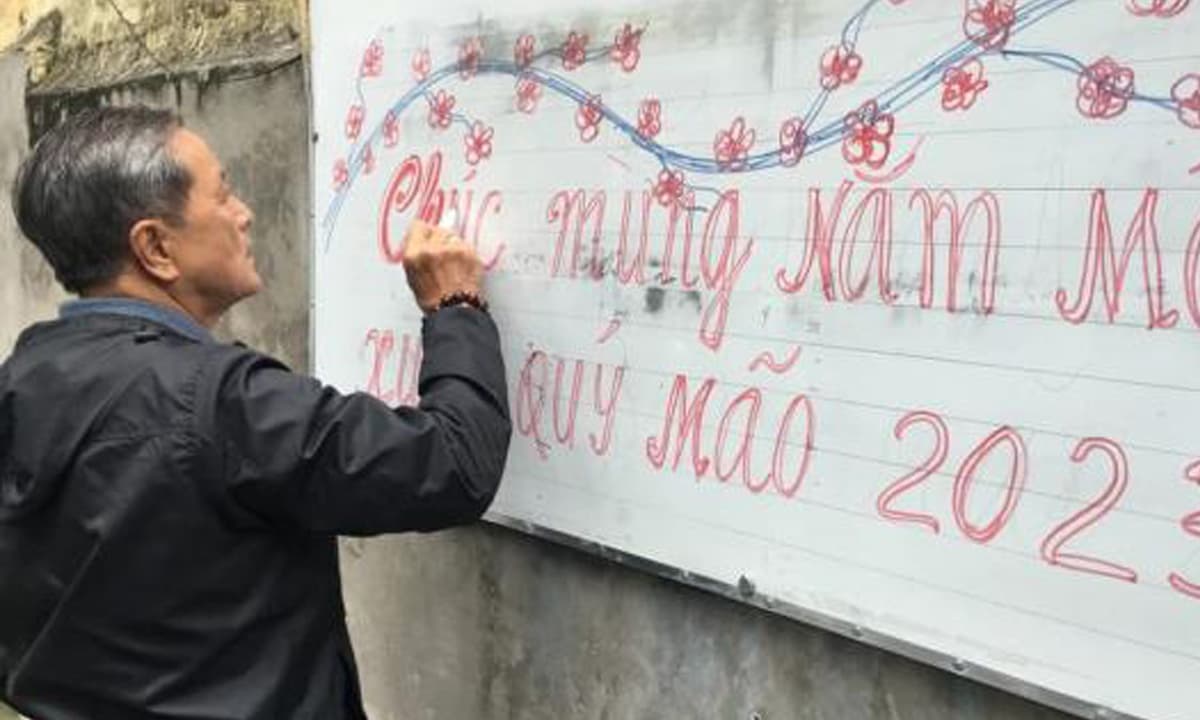 Chúc mừng Năm
QUÝ MÃO 2023